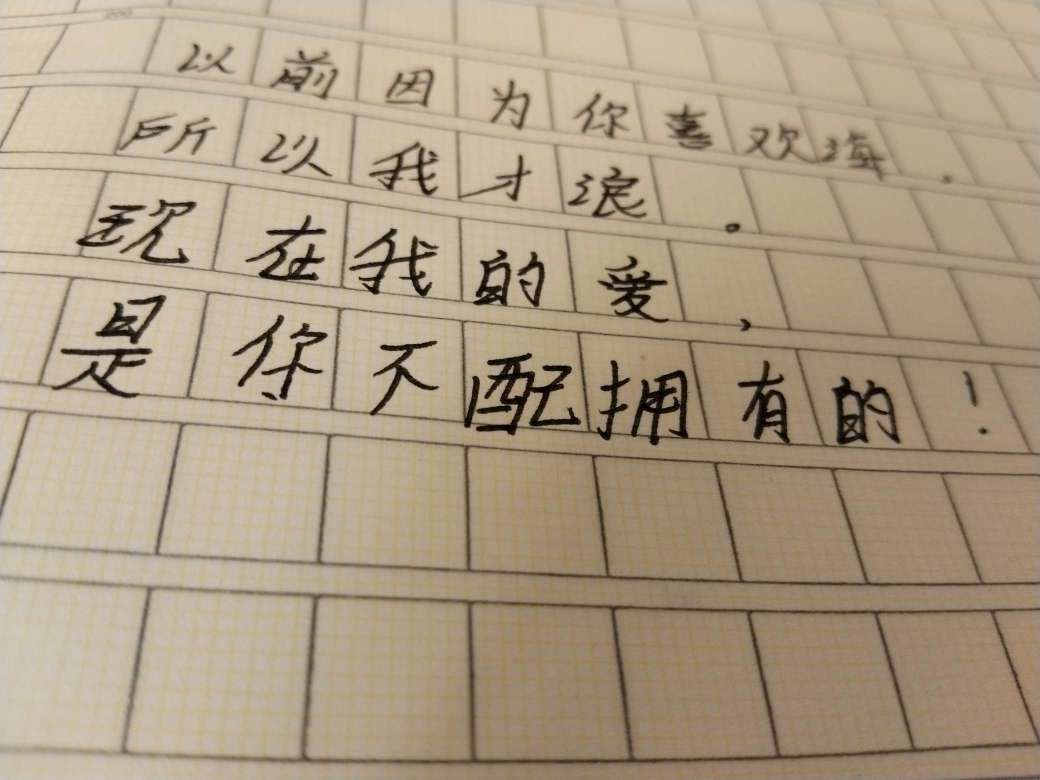 以前因为你喜欢海，
所以我才浪。
现在我的爱，
是你不配拥有的！